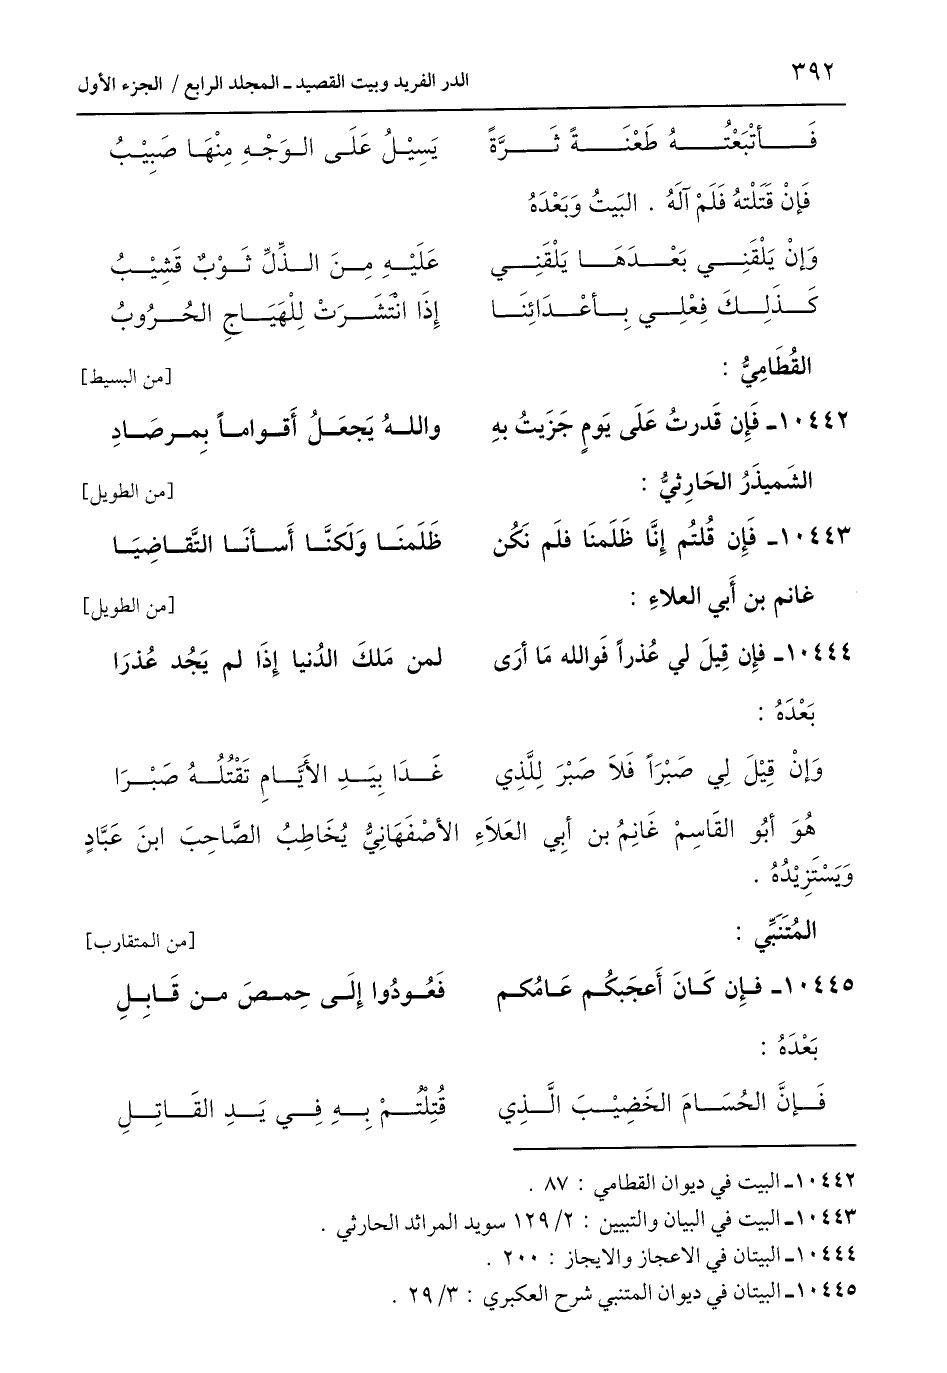 ٣٩٢ الدر الفريد وبيت القصيد ـ المجلد الرابع / الجزء الأول
فَـــأَتْبَعْتُـــهُ طَعْنَـــةً ثَـــرَّةً يَسِيْلُ عَلَى الـوَجْـهِ مِنْهَا صَبِيْبُ
فَإِنْ قَتَلْتهُ فَلَمْ آلَهُ . البَيتُ وَبَعْدَهُ
وَإِنْ يَلْقَنِـي بَعْـدَهَـا يَلْقَنِـي عَلَيْـهِ مِـنَ الـذِّلِّ ثَـوْبٌ قَشِيْـبُ
كَـذَلِـكَ فِعْلِـي بِـأَعْـدَائِنَـا إِذَا انْتَشَـرَتْ لِلْهَيَـاجِ الحُـرُوبُ
القُطَامِيُّ : [من البسيط]
١٠٤٤٢ـ فَإِن قَدرتُ عَلَى يَومٍ جَزَيتُ بهِ واللـهُ يَجعَـلُ أَقـوامـاً بِمـرصَـادِ
الشَميذَرُ الحَارِثيُّ : [من الطويل]
١٠٤٤٣ـ فَإِن قُلتُم إِنَّا ظَلَمنَا فلَم نَكُن ظَلَمنَـا وَلَكنَّـا أَسـأنَـا التَّقـاضِيَـا
غانم بن أَبي العلاءِ : [من الطويل]
١٠٤٤٤ـ فإِن قِيلَ لي عُذراً فَوالله مَا أرَى لمن مَلكَ الدُنيا إِذَا لم يَجُد عُذرَا
بَعْدَهُ :
وَإِنْ قِيْلَ لِي صَبْرَاً فَلاَ صَبْرَ لِلَّذِي غَـدَا بِيَـدِ الأَيَّـامِ تَقْتُلُـهُ صَبْـرَا
هُوَ أَبُو القَاسِمْ غَانِمُ بن أَبِي العَلاَءِ الأَصْفَهَانِيُّ يُخَاطِبُ الصَّاحِبَ ابنَ عَبَّادٍ
وَيَسْتَزِيْدُهُ .
المُتَنَبِّي : [من المتقارب]
١٠٤٤٥ـ فـإِن كَـانَ أَعجَبكُـم عَـامُكـم فَعُـودُوا إِلَـى حِمـصَ مـن قَـابِـلِ
بَعْدَهُ :
فَـإِنَّ الحُسَـامَ الخَضِيْـبَ الَّـذِي قُتِلْتُـمْ بِـهِ فِـي يَـدِ القَـاتِـلِ
١٠٤٤٢ـ البيت في ديوان القطامي : ٨٧ .
١٠٤٤٣ـ البيت في البيان والتبيين : ١٢٩/٢ سويد المرائد الحارثي .
١٠٤٤٤ـ البيتان في الاعجاز والايجاز : ٢٠٠ .
١٠٤٤٥ـ البيتان في ديوان المتنبي شرح العكبري : ٢٩/٣ .